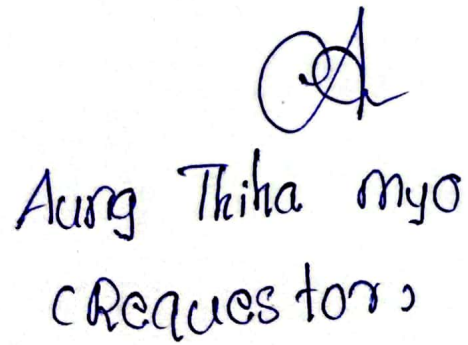 Aung Thiha Myo
(Requestor)